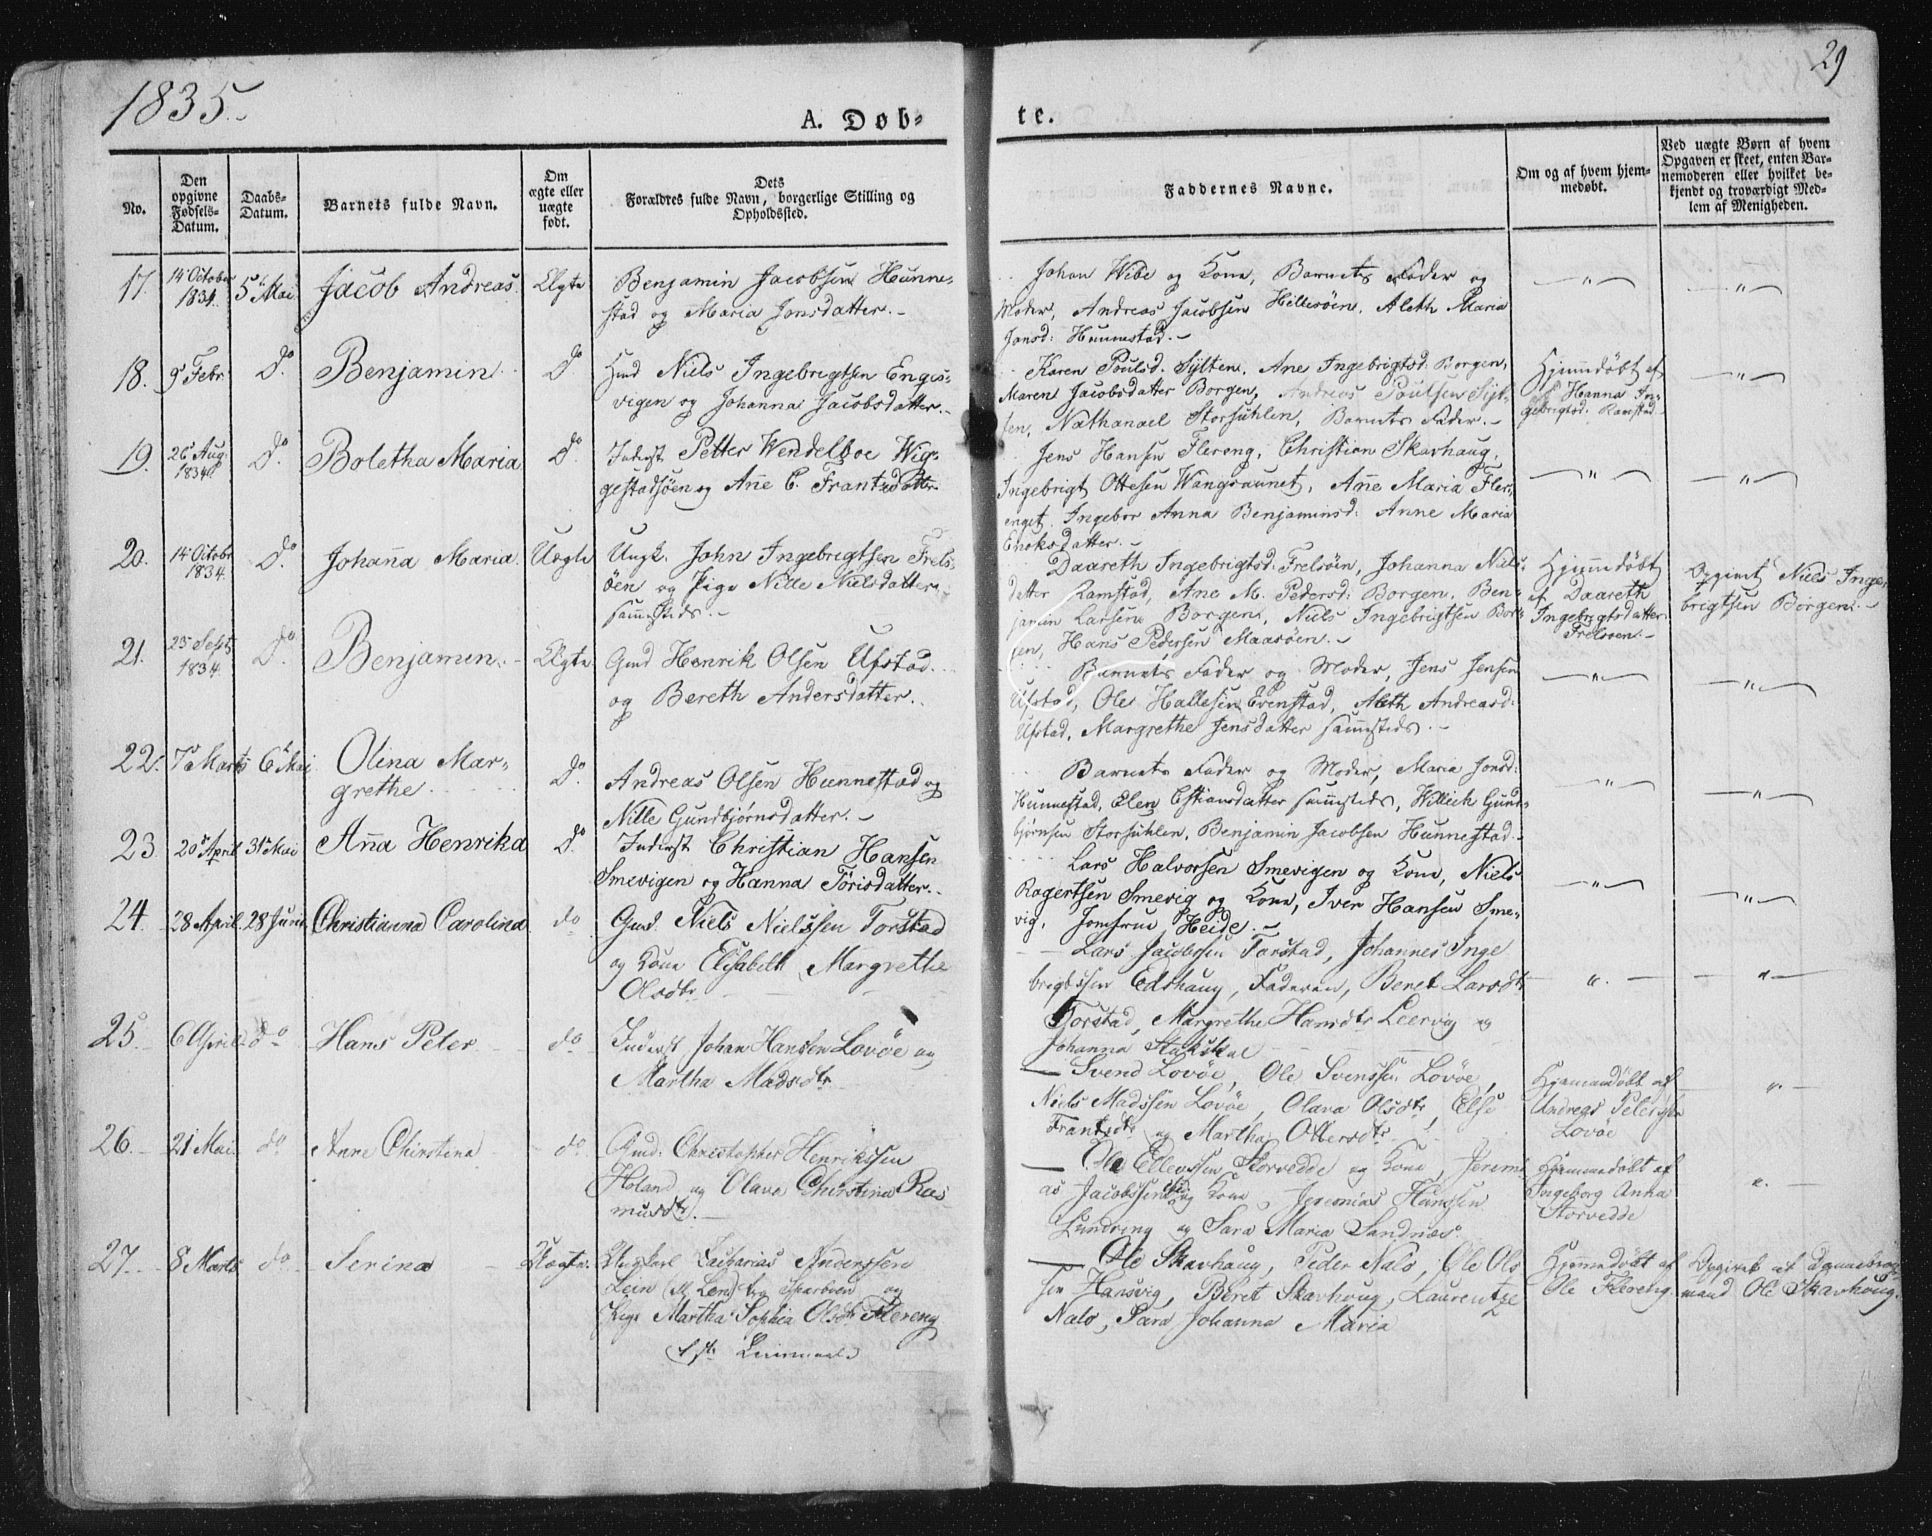 1835.
29
A. Døb-
te.
No.
Den
opgivne
Fødsels-
Datum.
Daabs-
Datum.
Barnets fulde Navn.
Om
ægte eller
uægte
født.
Dets
Forældres fulde Navn, borgerlige Stilling og
Opholdssted.
Faddernes Navne.
Om og af hvem hjem-
medøbt.
Ved uægte Børn af hvem
Opgaven er skeet, enten Bar-
nemoderen eller hvilket be-
kjendt og troværdigt Med-
lem af Menigheden.
17.
14 October
1834.
5 Mai
Jacob Andreas
Ægte
Benjamin Jacobsen Hunne-
stad og Maria Jonsdatter.-
Johan Wibe og Kone, Barnets Fader og
Moder, Andreas Jacobsen Hillesöen, Aleth Maria
Jonsd: Hunnestad.-
18.
9 Febr.
Do
Benjamin
Do
Gmd Niels Ingebrigtsen Engis-
vigen og Johanna Jacobsdatter.
Karen Poulsd. Sylten, Ane Ingebrigtsd: Borgen,
Maren Jacobsdatter Borgen, Andreas Poulsen Syl-
ten, Nathanael Storsuhlen, Barnets Fader.-
Hjemmdöbt af
Hanna In-
gebrigtsd: Ramstad
19.
26 Aug.
1834
Do
Boletha Maria
Do
Inderst Petter Wendelboe Wig-
gestadsöen og Ane C. Frantzdatter
Jens Hansen Flereng, Christian Skavhaug,
Ingebrigt Ottesen Wangsaunet, Ane Maria Fler-
enget, Ingebor Anna Benjaminsd: Anne Maria
Enoksdatter.-
20.
14 Octobr
1834.
Do
Johana Maria
Uægte
Ungk. John Ingebrigtsen Frels-
öen og Pige Nille Nielsdatter
sammesteds.-
Daareth Ingebrigtsd: Frelsöen, Johanna Niels-
datter Ramstad, Ane M. Pedersd: Borgen, Ben-
jamin Larsen Borgen, Niels Ingebrigtsen Bor-
gen, Hans Pedersen Maasöen.-
Hjemmdöbt
af Daareth
Ingebrigtsdatter
Frelsöen.-
Opgivet Niels Inge-
brigtsen Borgen.-
21.
25 Sept
1834.
Do
Benjamin.
Ægte
Gmd Henrik Olsen Ufstad
og Bereth Andersdatter.
Barnets Fader og Moder, Jens Jensen
Ufstad, Ole Hallesen Evenstad, Aleth Andreasd:
Ufstad, Margrethe Jensdatter sammesteds.-
22.
7 Marts
6 Mai
Olina Mar-
grethe
Do
Andreas Olsen Hunnestad og
Nille Gundbjörnsdatter.-
Barnets Fader og Moder, Maria Jonsd:
Hunnestad, Elen Estiansdatter sammesteds, Willich Gund-
bjørnsen Storsuhlen, Benjamin Jacobsen Hunnestad.
23
20 April
31 Mai
Anna Henrika
Do
Inderst Christian Hansen
Smevigen og Hanna Törisdatter.
Lars Halvorsen Smevigen og Kone, Niels
Rogertsen Smevig og Kone, Iver Hansen Sme-
vig, Jomfrue Heide.-
24.
28 April
28 Juni
Christianna Carolina
do
Gmd. Niels Nielssen Torstad
og Kone Elisabeth Margrethe
Olsdtr
Lars Jacobsen Torstad, Johannes Inge
brigtssen Edshaug, Faderen, Beret Larsdtr
Torstad, Margrethe Hansdtr Leervig og
Johanna
25.
6 April
do
Hans Peter
do
Inderst Johan Hanssen Lovöe og
Martha Madsdtr
Svend Lovöe, Ole Svenssen Lovöe,
Niels Madssen Lovöe, Olava Olsdtr, Else
Frantsdtr og Martha Ottersdtr
Hjemmedöbt af
Andreas Peterssen
Lovöe
26.
21 Mai
do
Anne Christina
do
Gmd. Christopher Henrikssen
Holand og Olava Christina Ras
musdtr.
Ole Ellevssen Storvedde og Kone, Jeremi
as Jacobssen og Kone Jeremias Hanssen
Lundring og Sara Maria Sandnæs.
Hjemmedöbt af
Ingeborg Anna
Storvedde
27.
8 Marts
do
Serina
Uægte.
Ungkarl Zacharias Anderssen
Lein fra Sparboen og
Pige Martha Sophia Olsdtr Flereng
1ste Leiermaal
Ole Skavhaug, Peder Nalo, Ole Ols
sen Hansvig, Beret Skavhoug, Laurentze
Nalo, Sara Johanna Maria
Hjemmedöbt af
Ole Flereng.
Opgivet af
mand Ole Skavhoug.